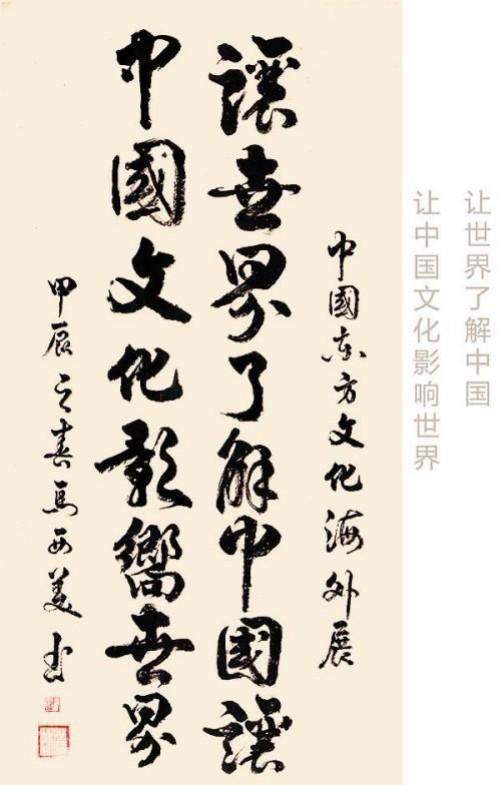 让世界了解中国
让中国文化影响世界
中國东方文化海外展
讓世界了解中國讓
中國文化影響世界
甲辰之春馬西美书